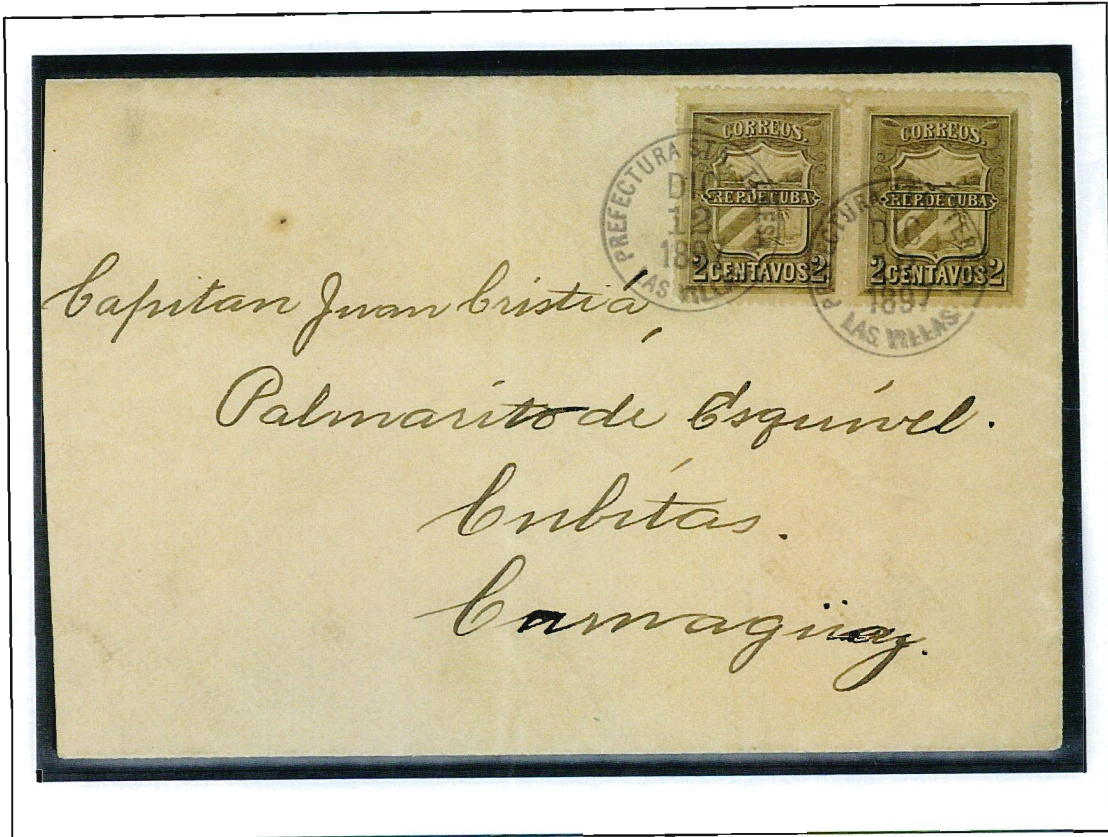 CORREOS.
REP. DE CUBA
2 CENTAVOS 2
CORREOS.
REP. DE CUBA
2 CENTAVOS 2
PREFECTURA STA. TERESA
DIC
12
1897
LAS VILLAS
DIC
1897
LAS VILLAS
Capitan Juan Cristiá,
Palmarito de Esquivel.
Cubitas.
Camagüey.